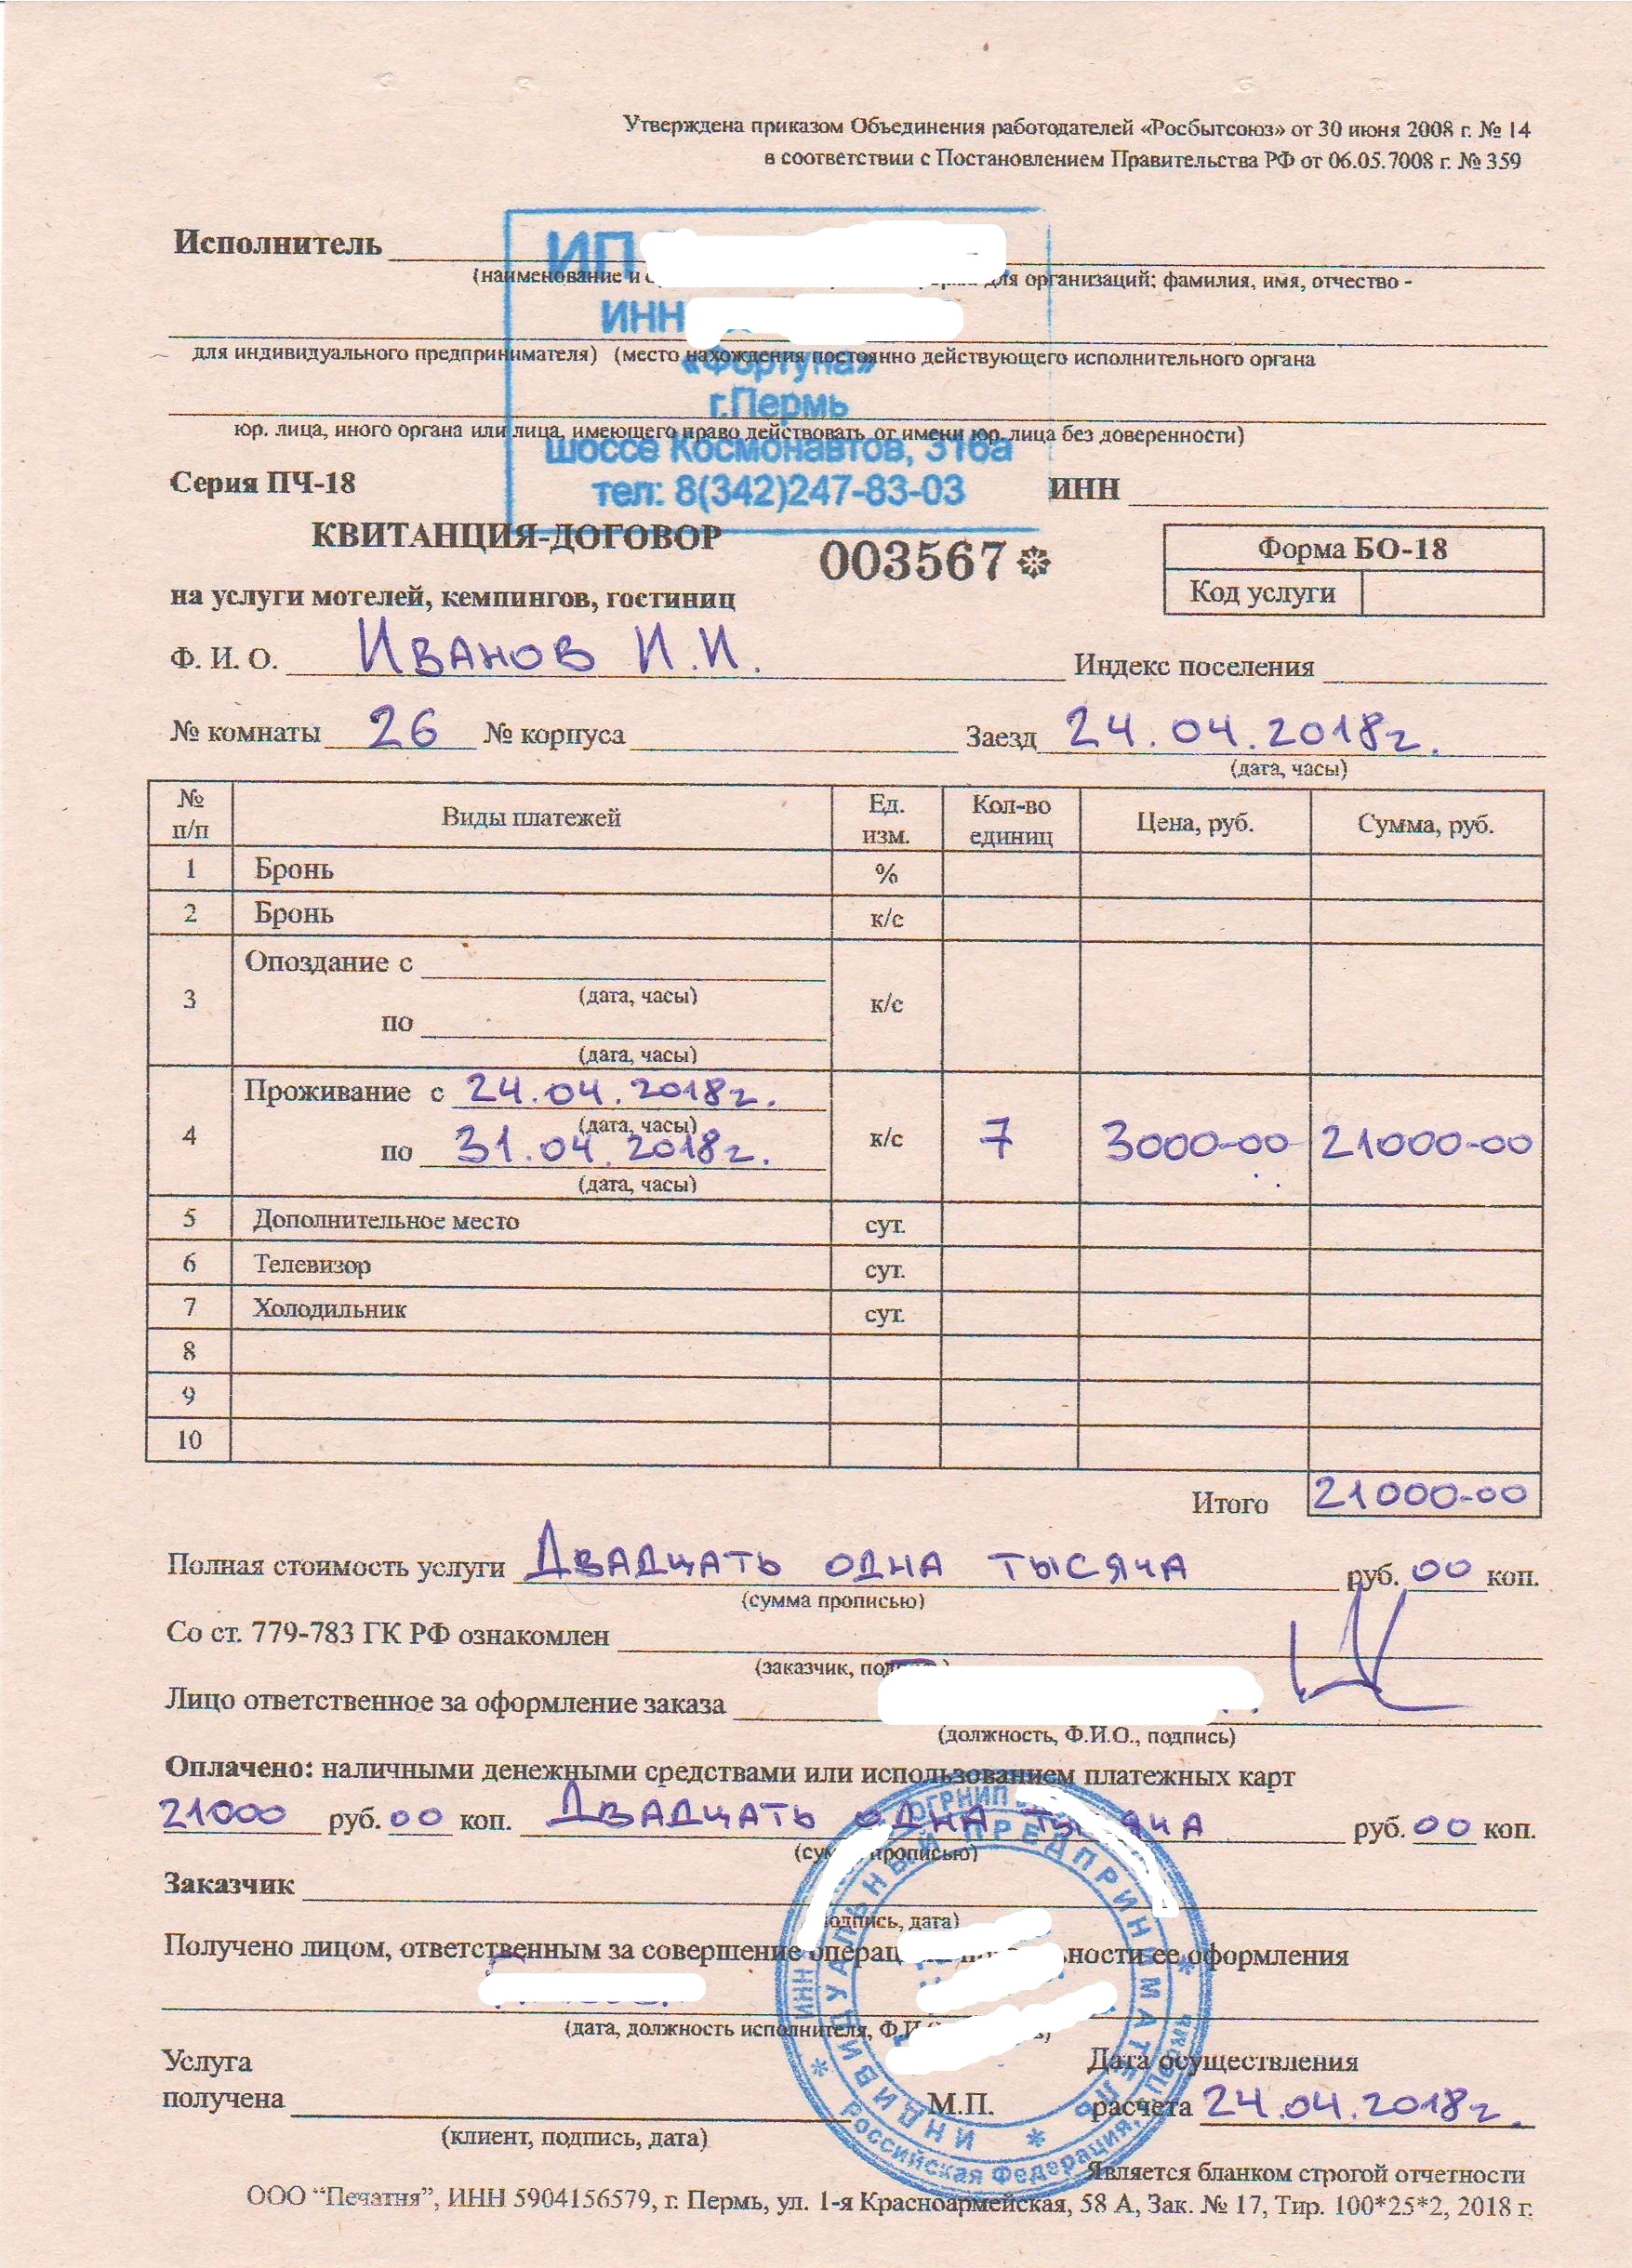 Утверждена приказом Объединения работодателей «Росбытсоюз» от 30 июня 2008 г. № 14
в соответствии с Постановлением Правительства РФ от 06.05.7008 г. № 359
Исполнитель
ИП
(наименование и для организаций; фамилия, имя, отчество -
ИНН
для индивидуального предпринимателя) (место нахождения постоянно действующего исполнительного органа
«Фортуна»
г.Пермь
юр. лица, иного органа или лица, имеющего право действовать от имени юр. лица без доверенности)
шоссе Космонавтов, 316а
Серия ПЧ-18 тел: 8(342)247-83-03 ИНН
КВИТАНЦИЯ-ДОГОВОР 003567
Форма БО-18
на услуги мотелей, кемпингов, гостиниц Код услуги
Ф. И. О. Иванов И.И. Индекс поселения
№ комнаты 26 № корпуса Заезд 24.04.2018г.
(дата, часы)
№ п/п Виды платежей Ед. изм. Кол-во единиц Цена, руб. Сумма, руб.
1 Бронь %
2 Бронь к/с
3 Опоздание с к/с
(дата, часы)
по
(дата, часы)
4 Проживание с 24.04.2018г. к/с 7 3000-00 21000-00
(дата, часы)
по 31.04.2018г.
(дата, часы)
5 Дополнительное место сут.
6 Телевизор сут.
7 Холодильник сут.
8
9
10
Итого 21000-00
Полная стоимость услуги Двадцать одна тысяча руб. 00 коп.
(сумма прописью)
Со ст. 779-783 ГК РФ ознакомлен
(заказчик,
Лицо ответственное за оформление заказа
(должность, Ф.И.О., подпись)
Оплачено: наличными денежными средствами или использованием платежных карт
21000 руб. 00 коп. Двадцать одна тысяча руб. 00 коп.
(сумма прописью)
Заказчик
(подпись, дата)
Получено лицом, ответственным за совершение ее оформления
(дата, должность исполнителя,
Услуга
получена
(клиент, подпись, дата)
М.П.
Дата осуществления
расчета 24.04.2018г.
ИНН ОГРНИП
ИНДИВИДУАЛЬНЫЙ ПРЕДПРИНИМАТЕЛЬ
Российская Федерация, г.Пермь
Является бланком строгой отчетности
ООО “Печатня”, ИНН 5904156579, г. Пермь, ул. 1-я Красноармейская, 58 А, Зак. № 17, Тир. 100*25*2, 2018 г.